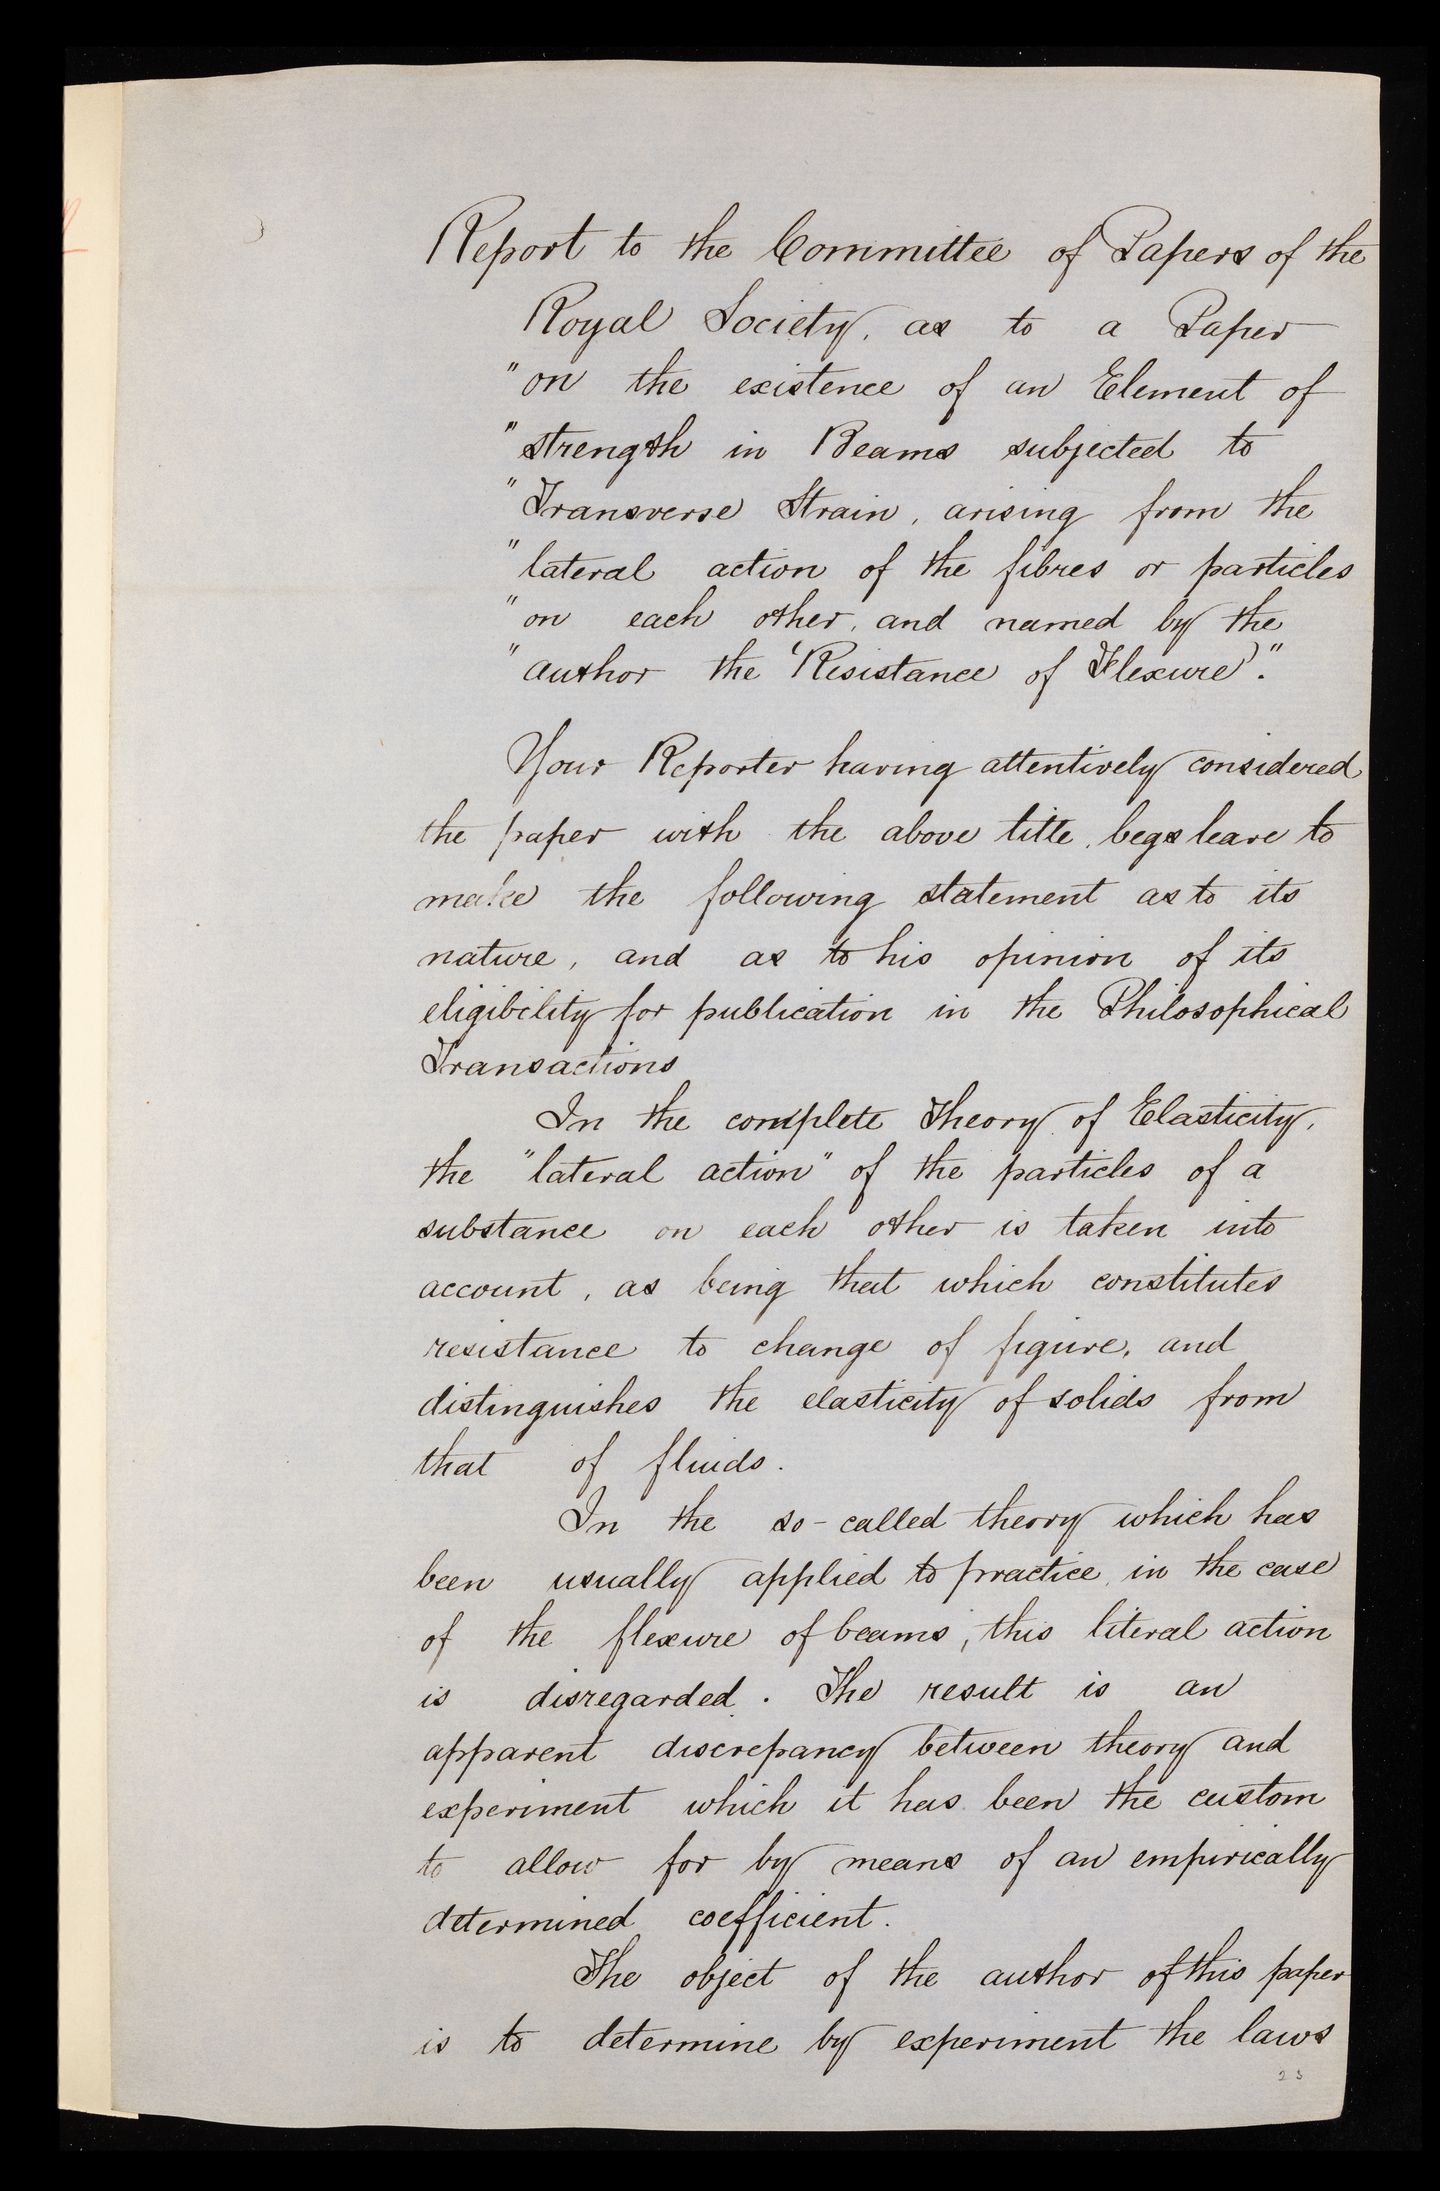 Report to the Committee of Papers of the
Royal Society, as to a Paper
"on the existence of an Element of
"strength in Beams subjected to
"Transverse Strain, arising from the
"lateral action of the fibres or particles
"on each other, and named by the
"author the 'Resistance of Flexure'."
Your Reporter having attentively considered
the paper with the above title, begs leave to
make the following statement as to its
nature, and as to his opinion of its
eligibility for publication in the Philosophical
Transactions
In the complete Theory of Elasticity,
the "lateral action" of the particles of a
substance on each other is taken into
account, as being that which constitutes
resistance to change of figure, and
distinguishes the elasticity of solids from
that of fluids.
In the so-called theory which has
been usually applied to practice, in the case
of the flexure of beams, this literal action
is disregarded. The result is an
apparent discrepancy between theory and
experiment which it has been the custom
to allow for by means of an empirically
determined coefficient.
The object of the author of this paper
is to determine by experiment the laws
23